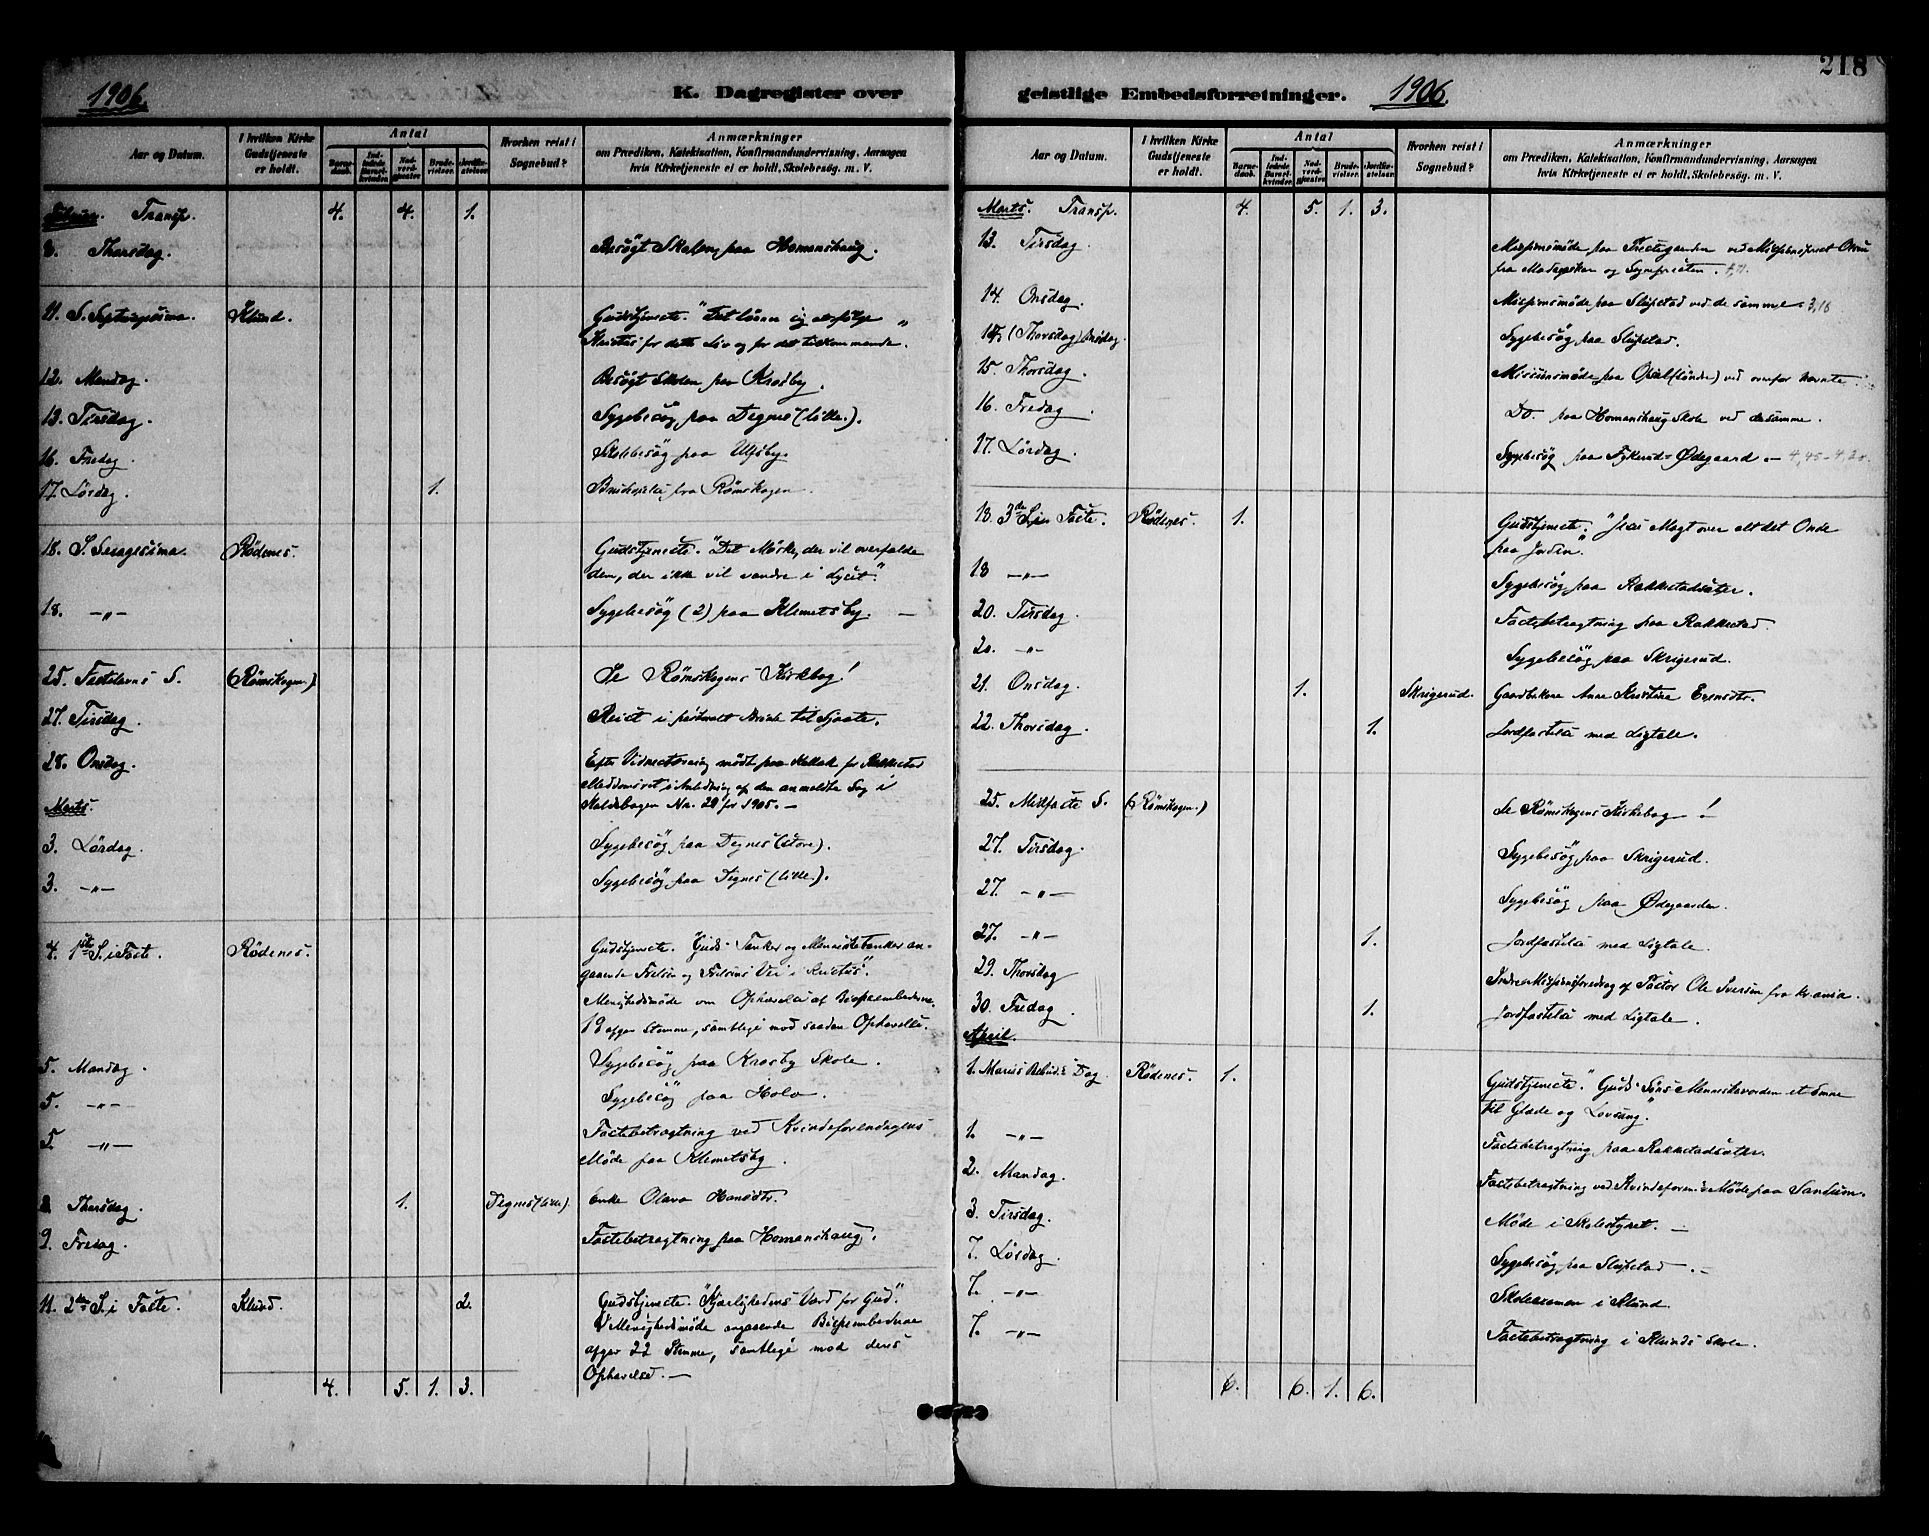 218
1906.
K. Dagregister over
Aar og Datum.
I hvilken Kirke Gudstjeneste er holdt.
Antal
Barnedaab.
Indledede Barselkvinder.
Nadverdgjæster.
Brudevielser.
Jordfæstelser.
Hvorhen reist i Sognebud?
Anmærkninger
om Prædiken, Katekisation, Konfirmandundervisning, Aarsagen
hvis Kirketjeneste ei er holdt, Skolebesøg. m. V.
Transp. 4. 4. 1.
8. Thorsdag. Besøgt Skolen paa Homanshaug.
11. S. Septuagesima. Klund. Gudstjeneste. "Det lønner sig at følge
Kristus for dette Liv og for det tilkommende."
12. Mandag. Besøgt Skolen paa Krosby.
13. Tirsdag. Sygebesøg paa Tegnes (lille.).
16. Fredag. Skolebesøg paa Ulfsby.
17. Lørdag. 1. fra Rømskogen.
18. S. Sexagesima. Rødenes. Gudstjeneste. "Det Mørke, der vil overfalde
dem, der ikke vil vandre i Lyset."
18. -"- Sygebesøg (2) paa Klemetsby. -
25. Fastelavns S. (Rømskogen.) Se Rømskogens Kirkebog!
27. Tirsdag. Reist i
28. Onsdag. Efter mødt paa for Rakkestad
Meddomsret i Anledning af den anmeldte Sag i
No. 28 for 1905. -
Marts.
3. Lørdag. Sygebesøg paa Tegnes (store).
3. -"- Sygebesøg paa Tegnes (lille.).
4. 1ste S. i Faste. Rødenes. Gudstjeneste. "Guds Tanker og Mennesketanker an-
gaaende Frelsen og Frelsens Vei i Kristus."
Menighedsmøde om Ophævelse af Bispeembederne.
19 afgav Stemme, samtlige mod saadan Ophævelse.
5. Mandag. Sygebesøg paa Krosby Skole.
5. -"- Sygebesøg paa Holo.
5. -"- Fastebetragtning ved Kvindeforeningens
Møde paa Klemetsby.
8. Thorsdag. 1. Tegnes (lille). Enke Olava Hansdtr.
9. Fredag. Fastebetragtning paa Homanshaug.
11. 2den S. i Faste. Klund. 2. Gudstjeneste. "Kjærlighedens Værd for Gud".
Menighedsmøde angaaende Bispeembederne
afgav 22 Stemme, samtlige mod deres
Ophævelse. -
4. 5. 1. 3.
geistlige Embedsforretninger. 1906.
Aar og Datum.
I hvilken Kirke Gudstjeneste er holdt.
Antal
Barnedaab.
Indledede Barselkvinder.
Nadverdgjæster.
Brudevielser.
Jordfæstelser.
Hvorhen reist i Sognebud?
Anmærkninger
om Prædiken, Katekisation, Konfirmandundervisning, Aarsagen
hvis Kirketjeneste ei er holdt, Skolebesøg. m. V.
Marts. Transp. 4. 5. 1. 3.
13. Tirsdag. Missionsmøde paa Prestegaarden ved
fra Madagaskar og
14. Onsdag. Missionsmøde paa Slupstad ved de samme.
14 (Thorsdag) Onsdag. Sygebesøg paa Slupstad.
15. Thorsdag. Missionsmøde paa ved ovenfor nævnte.
16. Fredag. Do paa Homanshaug Skole ved desamme.
17. Lørdag. Sygebesøg paa Ødegaard. -
18. 3die S. i Faste. Rødenes. 1. Gudstjeneste. "Jesu Magt over alt det Onde
paa Jorden."
18 -"- Sygebesøg paa Rakkestadsæter.
20. Tirsdag. Fastebetragtning paa Rakkestad.
20. -"- Sygebesøg paa Skrigerud.
21. Onsdag. 1. Skrigerud. Kristine
22. Thorsdag. 1. Jordfæstelse med Ligtale.
25. Midfaste S. (Rømskogen.) Se Rømskogens Kirkebog!
27. Tirsdag. Sygebesøg paa Skrigerud.
27. -"- Sygebesøg paa Ødegaarden.
27. -"- 1. Jordfæstelse med Ligtale.
29. Thorsdag Indremissionsforedrag af Pastor Ole Iversen fra Kr.ania.
30. Fredag. 1. Jordfæstelse med Ligtale.
April.
1. Mariæ Bebud.s Dag. Rødenes. 1. Gudstjeneste. "Guds Søns Menneskevorden et Emne
til Glæde og Lovsang."
1. -"- Fastebetragtning paa Rakkestadsæter.
2. Mandag. Fastebetragtning ved Kvindeforen.s Møde paa Sandum.
3. Tirsdag. Møde i Skolestyret. -
7. Lørdag. Sygebesøg paa Slupstad. -
7. -"- Skoleexamen i Klund.
7. -"- Fastebetragtning i Klunds Skole.
6. 6. 1. 6.